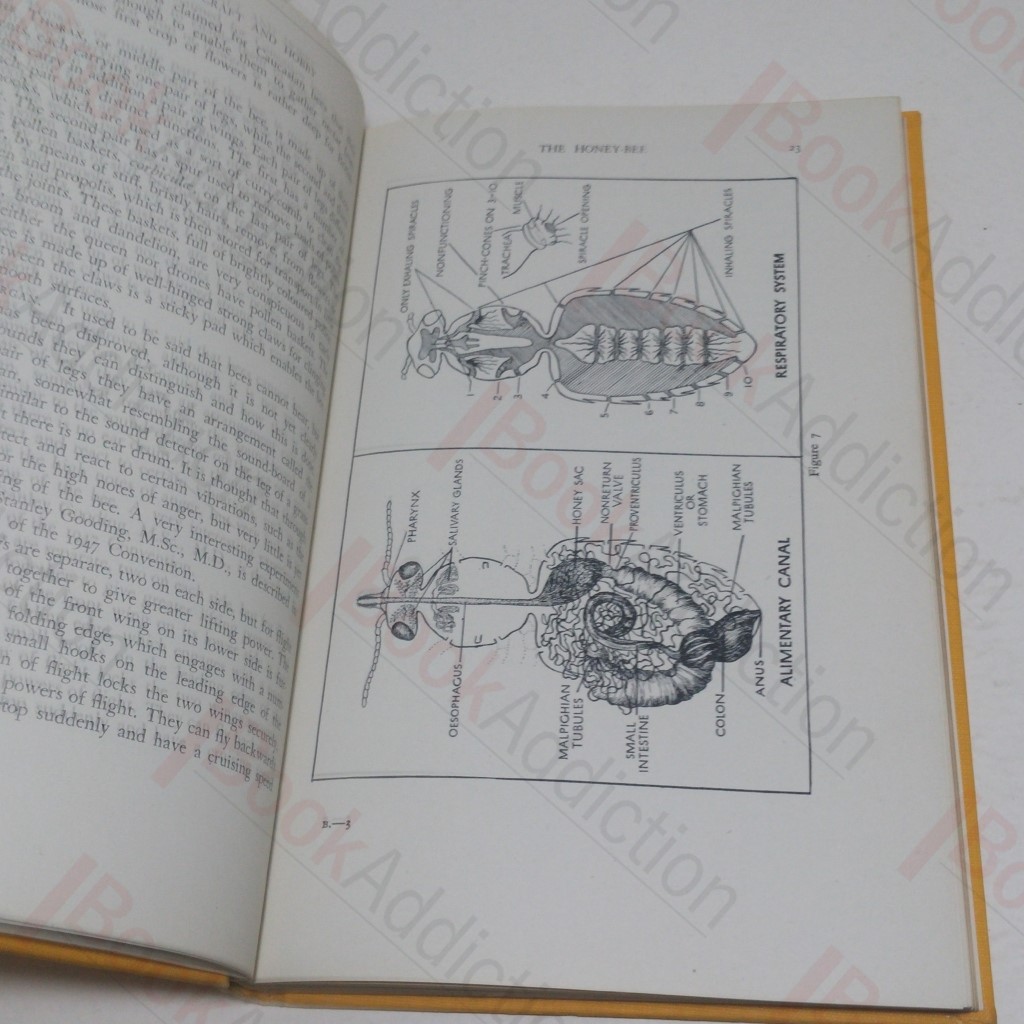 CRAFT AND HIVE
claimed for Caucasian bees
enough to enable them to gather
those first crop of flowers is rather deep for
THORAX, or middle part of the bee, is made of
each carrying one pair of legs, while the second and
carry in addition a pair of wings. Each pair of
has a distinct function. The first has a
which is used as a sort of curry-comb
The second pair has a spur used to remove
pollen baskets, corbiculae, on the last pair of
by means of stiff, bristly hairs,
and propolis, which is then stored for transport
the joints. These baskets, full of brightly coloured
broom and dandelion, are very conspicuous
either the queen nor drones have pollen baskets.
is made up of well-hinged strong claws for
between the claws is a sticky pad which enables
smooth surfaces.
It used to be said that bees cannot hear,
has been disproved, although it is not yet clear
sounds they can distinguish and how this is
pair of legs they have an arrangement called
somewhat resembling the sound-board of
similar to the sound detector on the leg of a
there is no ear drum. It is thought that through
detect and react to certain vibrations, such as the
or the high notes of anger, but very little is
of the bee. A very interesting experiment
Stanley Gooding, M.Sc., M.D., is described
of the 1947 Convention.
are separate, two on each side, but for flight
together to give greater lifting power. The
of the front wing on its lower side is
folding edge, which engages with a
small hooks on the leading edge of the
of flight locks the two wings securely
powers of flight. They can fly backwards
stop suddenly and have a cruising speed
THE HONEY-BEE 23
ONLY EXHALING SPIRACLES
NONFUNCTIONING
PINCH-CONES ON 3-10
TRACHEA
MUSCLE
SPIRACLE OPENING
INHALING SPIRACLES
1
2
3
4
5
6
7
8
9
10
RESPIRATORY SYSTEM
PHARYNX
SALIVARY GLANDS
HONEY SAC
NONRETURN
VALVE
PROVENTRICULUS
VENTRICULUS
OR
STOMACH
MALPIGHIAN
TUBULES
OESOPHAGUS
MALPIGHIAN
TUBULES
SMALL
INTESTINE
COLON
ANUS
ALIMENTARY CANAL
Figure 7
B.—3
BookAddiction